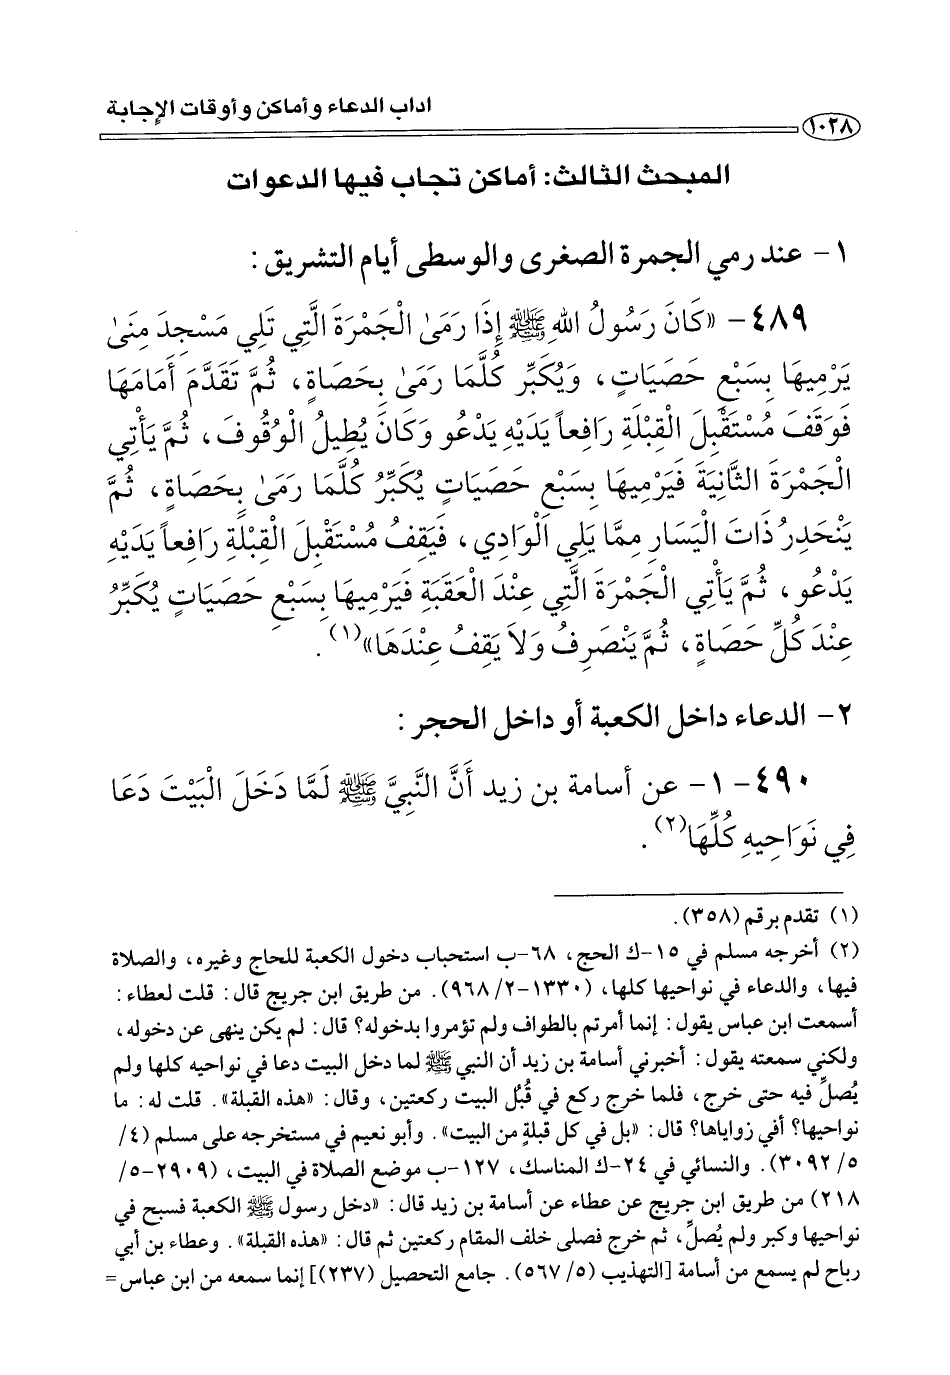 اداب الدعاء وأماكن وأوقات الإجابة
١٠٢٨
المبحث الثالث: أماكن تجاب فيها الدعوات
١- عند رمي الجمرة الصغرى والوسطى أيام التشريق:
٤٨٩- «كَانَ رَسُولُ اللهِ ﷺ إِذَا رَمَىٰ الْجَمْرَةَ الَّتِي تَلِي مَسْجِدَ مِنَىٰ
يَرْمِيهَا بِسَبْعِ حَصَيَاتٍ، وَيُكَبِّر كُلَّمَا رَمَىٰ بِحَصَاةٍ، ثُمَّ تَقَدَّمَ أَمَامَهَا
فَوَقَفَ مُسْتَقْبِلَ الْقِبْلَةِ رَافِعاً يَدَيْهِ يَدْعُو وَكَانَ يُطِيلُ الْوُقُوفَ، ثُمَّ يَأْتِي
الْجَمْرَةَ الثَّانِيَةَ فَيَرْمِيهَا بِسَبْعِ حَصَيَاتٍ يُكَبِّرُ كُلَّمَا رَمَىٰ بِحَصَاةٍ، ثُمَّ
يَنْحَدِرُ ذَاتَ الْيَسَارِ مِمَّا يَلِي الْوَادِي، فَيَقِفُ مُسْتَقْبِلَ الْقِبْلَةِ رَافِعاً يَدَيْهِ
يَدْعُو، ثُمَّ يَأْتِي الْجَمْرَةَ الَّتِي عِنْدَ الْعَقَبَةِ فَيَرْمِيهَا بِسَبْعِ حَصَيَاتٍ يُكَبِّرُ
عِنْدَ كُلِّ حَصَاةٍ، ثُمَّ يَنْصَرِفُ وَلاَ يَقِفُ عِنْدَهَا»(١).
٢- الدعاء داخل الكعبة أو داخل الحجر:
٤٩٠- ١- عن أسامة بن زيد أَنَّ النَّبِيَّ ﷺ لَمَّا دَخَلَ الْبَيْتَ دَعَا
فِي نَوَاحِيهِ كُلِّهَا(٢).
(١) تقدم برقم (٣٥٨).
(٢) أخرجه مسلم في ١٥-ك الحج، ٦٨-ب استحباب دخول الكعبة للحاج وغيره، والصلاة
فيها، والدعاء في نواحيها كلها، (١٣٣٠-٢/ ٩٦٨). من طريق ابن جريج قال: قلت لعطاء:
أسمعت ابن عباس يقول: إنما أمرتم بالطواف ولم تؤمروا بدخوله؟ قال: لم يكن ينهى عن دخوله،
ولكني سمعته يقول: أخبرني أسامة بن زيد أن النبي ﷺ لما دخل البيت دعا في نواحيه كلها ولم
يُصلِّ فيه حتى خرج، فلما خرج ركع في قُبُل البيت ركعتين، وقال: «هذه القبلة». قلت له: ما
نواحيها؟ أفي زواياها؟ قال: «بل في كل قبلةٍ من البيت». وأبو نعيم في مستخرجه على مسلم (٤/
٥/ ٣٠٩٢). والنسائي في ٢٤-ك المناسك، ١٢٧-ب موضع الصلاة في البيت، (٢٩٠٩-٥/
٢١٨) من طريق ابن جريج عن عطاء عن أسامة بن زيد قال: «دخل رسول ﷺ الكعبة فسبح في
نواحيها وكبر ولم يُصلِّ، ثم خرج فصلى خلف المقام ركعتين ثم قال: «هذه القبلة». وعطاء بن أبي
رباح لم يسمع من أسامة [التهذيب (٥/ ٥٦٧). جامع التحصيل (٢٣٧)] إنما سمعه من ابن عباس =